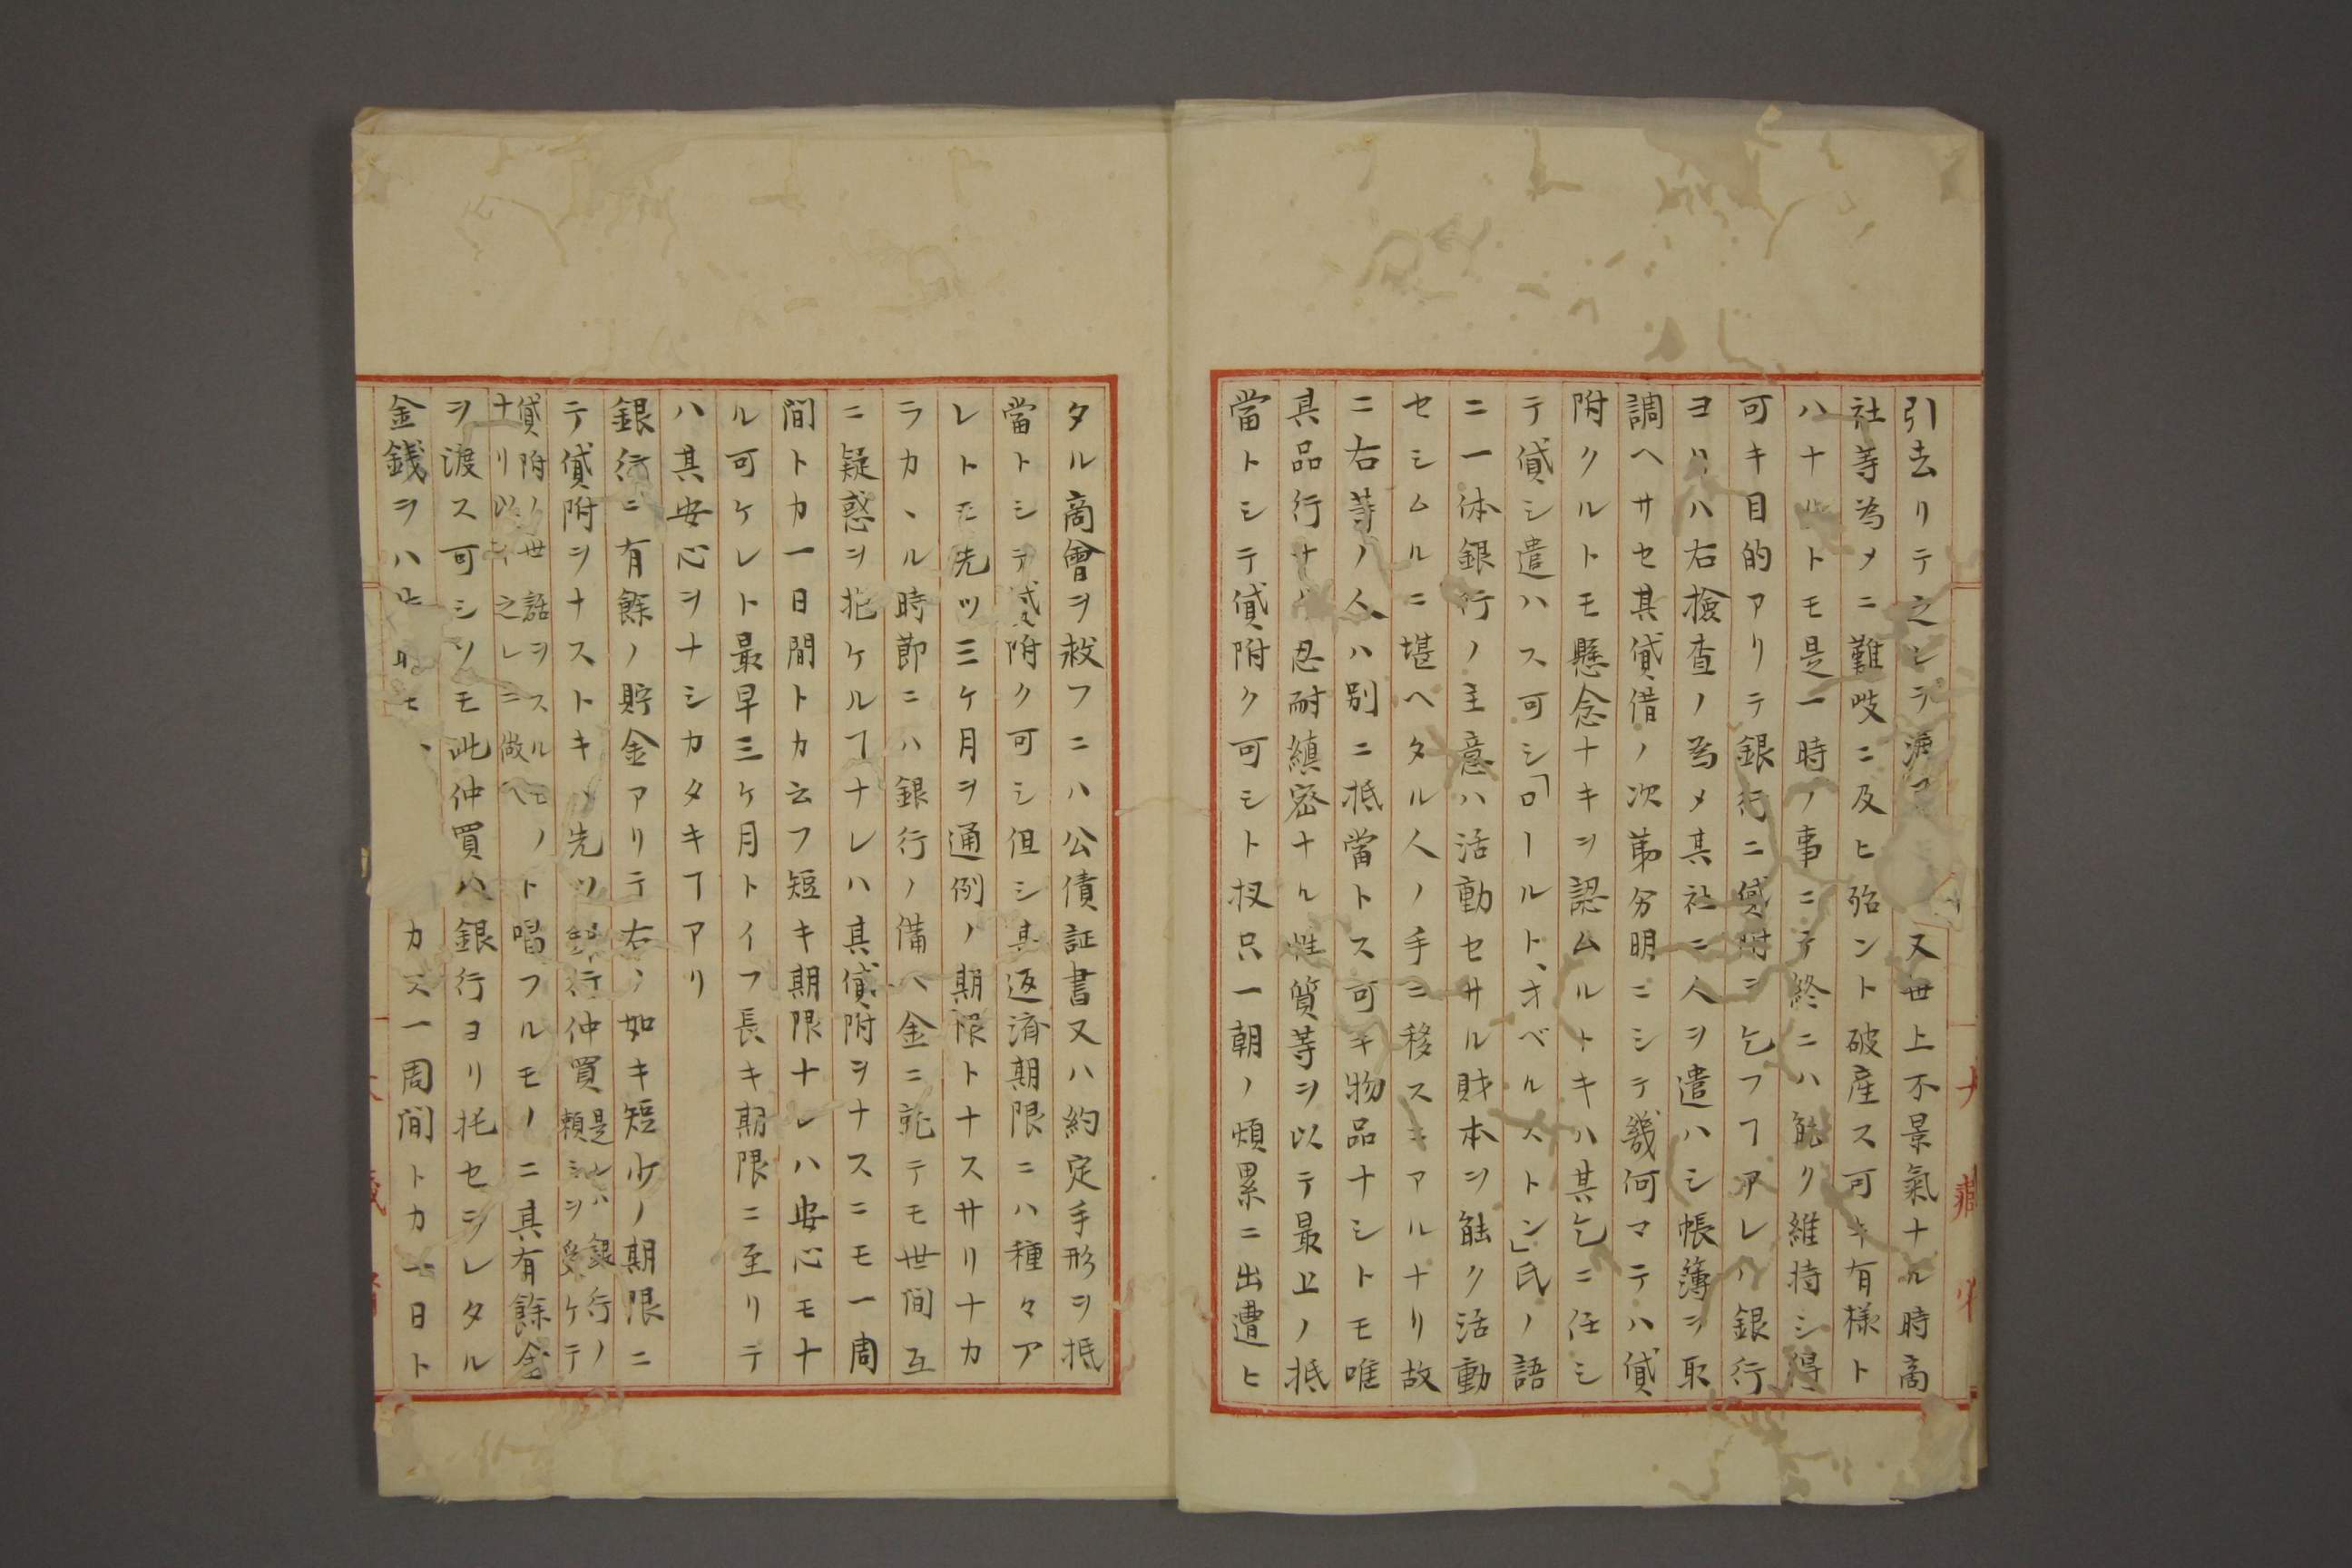 引去リテ之シラ 又世上不景氣ナル時商
社等為メニ難岐ニ及ヒ殆ント破産ス可キ有様ト
ハナルトモ是一時ノ事ニテ終ニハ能ク維持シ得
可キ目的アリテ銀行ニ貸附ヲ乞フヿアレハ銀行
ヨリハ右撿査ノ為メ其社ニ人ヲ遣ハシ帳簿ヲ取
調ヘサセ其貸借ノ次第分明ニシテ幾何マテハ貸
附クルトモ懸念ナキヲ認ムルトキハ其乞ニ任シ
テ貸シ遣ハス可シ「ロールト、オベルストン」氏ノ語
ニ一体銀行ノ主意ハ活動セサル財本ヲ能ク活動
セシムルニ堪ヘタル人ノ手ニ移スニアルナリ故
ニ右等ノ人ハ別ニ抵當トス可キ物品ナシトモ唯
其品行ナリ忍耐縝密ナル性質等ヲ以テ最上ノ抵
當トシテ貸附ク可シト扠只一朝ノ煩累ニ出遭ヒ
タル商會ヲ救フニハ公債証書又ハ約定手形ヲ抵
當トシテ貸附ク可シ但シ其返済期限ニハ種々ア
レトモ先ツ三ケ月ヲ通例ノ期限トナスサリナカ
ラカヽル時節ニハ銀行ノ備ヘ金ニ就テモ世間互
ニ疑惑ヲ抱ケルヿナレハ其貸附ヲナスニモ一周
間トカ一日間トカ云フ短キ期限ナレハ安心モナ
ル可ケレト最早三ケ月トイフ長キ期限ニ至リテ
ハ其安心ヲナシカタキヿアリ
銀行ニ有餘ノ貯金アリテ右ノ如キ短少ノ期限ニ
テ貸附ヲナストキハ先ツ銀行仲買是レハ銀行ノ頼シヲ受ケテ
貸附ノ世話ヲスルモノナリ以下之レニ倣ヘト唱フルモノニ其有餘金
ヲ渡ス可シソモ此仲買ハ銀行ヨリ托セラレタル
金銭ヲハ カス一周間トカ一日ト